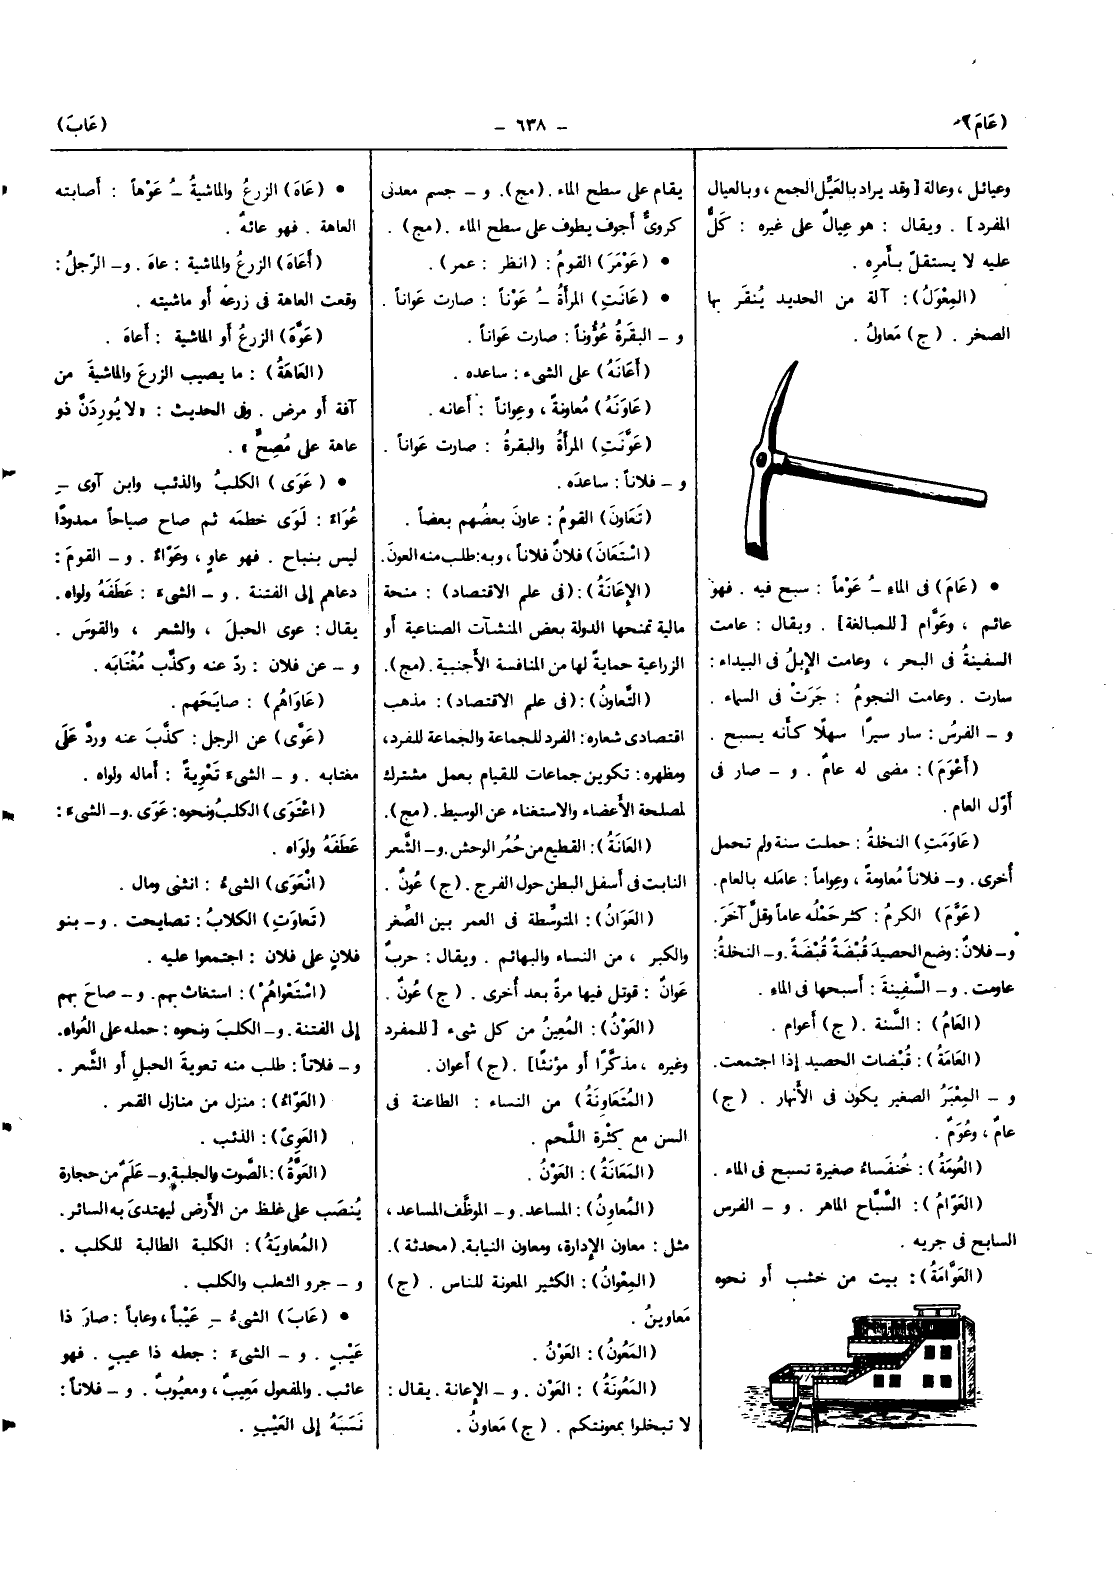 (عَامَ)
– ٦٣٨ –
(عَابَ)
وعيائل ، وعالة [ وقد يراد بالعَيِّل الجمع ، وبالعيال
المفرد ] . ويقال : هو عِيالٌ على غيره : كَلٌّ
عليه لا يستقلّ بأَمرِه .
(المِعْوَلُ) : آلة من الحديد يُنقَر بها
الصخر . (ج) مَعاولُ .
• (عَامَ) فى الماءِ ـُ عَوْماً : سبح فيه . فهو
عائم ، وعَوَّام [ للمبالغة ] . ويقال : عامت
السفينةُ فى البحر ، وعامت الإِبلُ فى البيداء :
سارت . وعامت النجومُ : جَرَتْ فى السماء .
و – الفرسُ : سار سيراً سهلًا كأَنه يسبح .
(أَعْوَمَ) : مضى له عامٌ . و – صار فى
أَوّل العام .
(عَاوَمَتِ) النخلةُ : حملت سنة ولم تحمل
أُخرى . و– فلاناً مُعاومةً ، وعِواماً : عامَله بالعام .
(عَوَّمَ) الكرمُ : كثر حَمْلُه عاماً وقلَّ آخَرَ .
و– فلانٌ : وضع الحصيدَ قُبْضَةً قُبْضَةً . و– النخلةُ :
عاومت . و – السَّفِينةَ : أَسبحها فى الماء .
(العَامُ) : السَّنة . (ج) أَعوام .
(العَامَةُ) : قُبْضات الحصيد إِذا اجتمعت .
و – المِعْبَرُ الصغير يكون فى الأَنهار . (ج)
عامٌ ، وعُوَمٌ .
(العُومَةُ) : خُنفَساءُ صغيرة تسبح فى الماء .
(العَوّامُ) : السَّبَّاح الماهر . و – الفرس
السابح فى جريه .
(العَوَّامَةُ) : بيت من خشب أَو نحوه
يقام على سطح الماء . (مج) . و – جسم معدنى
كروىٌّ أَجوف يطوف على سطح الماء . (مج) .
• (عَوْمَرَ) القومُ : (انظر : عمر) .
• (عَانَتِ) المرأَةُ ـُ عَوْناً : صارت عَواناً .
و – البقرةُ عُؤُوناً : صارت عَواناً .
(أَعَانَهُ) على الشىء : ساعده .
(عَاوَنَهُ) مُعاونةً ، وعِواناً : أَعانه .
(عَوَّنَتِ) المرأَةُ والبقرةُ : صارت عَواناً .
و – فلاناً : ساعدَه .
(تَعَاوَنَ) القومُ : عاونَ بعضُهم بعضاً .
(اسْتَعَانَ) فلانٌ فلاناً ، وبه : طلب منه العونَ .
(الإِعَانَةُ) : (فى علم الاقتصاد) : منحة
مالية تمنحها الدولة بعض المنشآت الصناعية أَو
الزراعية حمايةً لها من المنافسة الأَجنبية . (مج) .
(التَّعاونُ) : (فى علم الاقتصاد) : مذهب
اقتصادى شعاره : الفرد للجماعة والجماعة للفرد ،
ومظهره : تكوين جماعات للقيام بعمل مشترك
لمصلحة الأَعضاء والاستغناء عن الوسيط . (مج) .
(العَانَةُ) : القطيع من حُمُر الوحش . و– الشَّعر
النابت فى أَسفل البطن حول الفرج . (ج) عُونٌ .
(العَوَانُ) : المتوسِّطة فى العمر بين الصِّغر
والكبر ، من النساء والبهائم . ويقال : حربٌ
عَوانٌ : قوتل فيها مرةً بعد أُخرى . (ج) عُونٌ .
(العَوْنُ) : المُعِينُ من كل شىء [ للمفرد
وغيره ، مذكَّرًا أَو مؤنثًا ] . (ج) أَعوان .
(المُتَعَاوِنَةُ) من النساء : الطاعنة فى
السن مع كثْرة اللَّحم .
(المَعَانَةُ) : العَوْنُ .
(المُعاوِنُ) : المساعد . و – الموظَّف المساعد ،
مثل : معاون الإِدارة ، ومعاون النيابة . (محدثة) .
(المِعْوانُ) : الكثير المعونة للناس . (ج)
مَعاوينُ .
(المَعُونُ) : العَوْنُ .
(المَعُونَةُ) : العَوْن . و – الإِعانة . يقال :
لا تبخلوا بمعونتكم . (ج) مَعاونُ .
• (عَاهَ) الزرعُ والماشيةُ ـُ عَوْهاً : أَصابته
العاهة . فهو عائهٌ .
(أَعَاهَ) الزرعُ والماشية : عاهَ . و– الرّجلُ :
وقعت العاهة فى زرعه أَو ماشيته .
(عَوَّهَ) الزرعُ أَو الماشية : أَعاهَ .
(العَاهَةُ) : ما يصيب الزرعَ والماشيةَ من
آفة أَو مرض . وفى الحديث : « لا يُورِدَنَّ ذو
عاهة على مُصِحٍّ » .
• (عَوَى) الكلبُ والذئب وابن آوى ـِ
عُوَاءً : لَوَى خطمَه ثم صاح صياحاً ممدودًا
ليس بنباح . فهو عاوٍ ، وعَوّاءٌ . و – القومَ :
دعاهم إلى الفتنة . و – الشىءَ : عَطَفَهُ ولواه .
يقال : عوى الحبلَ ، والشعر ، والقوسَ .
و – عن فلان : ردّ عنه وكذَّب مُغْتَابَه .
(عَاوَاهُم) : صايَحَهم .
(عَوَّى) عن الرجل : كذَّبَ عنه وردَّ عَلَى
مغتابه . و – الشىءَ تَعْوِيةً : أَماله ولواه .
(اعْتَوَى) الكلبُ ونحوه : عَوَى . و– الشىءَ :
عَطَفَهُ ولوَاه .
(انْعَوَى) الشىءُ : انثنى ومال .
(تَعاوَتِ) الكلابُ : تصايحت . و – بنو
فلانٍ على فلان : اجتمعوا عليه .
(اسْتَعْواهُمْ) : استغاث بهم . و – صاحَ بهم
إلى الفتنة . و– الكلبَ ونحوه : حمله على العُواه .
و– فلاناً : طلب منه تعويةَ الحبلِ أَو الشَّعر .
(العَوّاءُ) : منزل من منازل القمر .
(العَوِىّ) : الذئب .
(العَوَّةُ) : الصَّوت والجلبة . و– عَلَمٌ من حجارة
يُنصَب على غلظ من الأَرض ليهتدىَ به السائر .
(المُعاوِيَةُ) : الكلبة الطالبة للكلب .
و – جرو الثعلب والكلب .
• (عَابَ) الشىءُ ـِ عَيْباً ، وعاباً : صارَ ذا
عَيْبٍ . و – الشىءَ : جعله ذا عيبٍ . فهو
عائب . والمفعول مَعِيبٌ ، ومعيُوبٌ . و – فلاناً :
نَسَبَهُ إلى العَيْبِ .